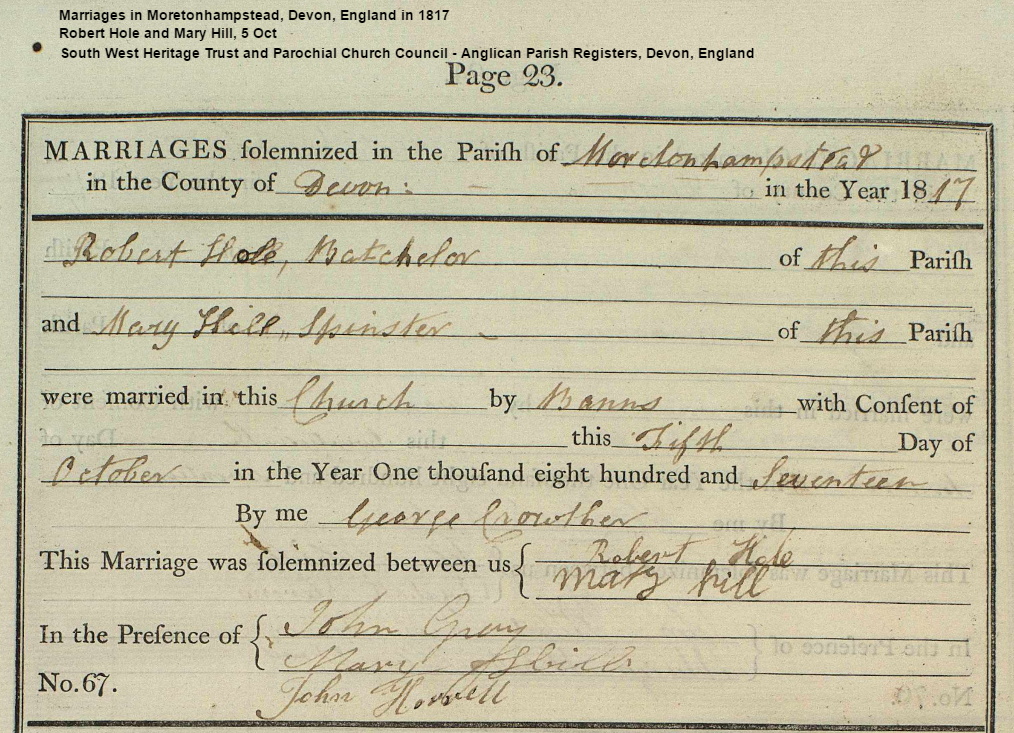 Marriages in Moretonhampstead, Devon, England in 1817
Robert Hole and Mary Hill, 5 Oct
South West Heritage Trust and Parochial Church Council - Anglican Parish Registers, Devon, England
Page 23.
MARRIAGES ſolemnized in the Pariſh of Moretonhampstead
in the County of Devon: in the Year 1817
Robert Hole, Batchelor of this Pariſh
and Mary Hill, Spinster of this Pariſh
were married in this Church by Banns with Conſent of
this Fifth Day of
October in the Year One thouſand eight hundred and Seventeen
By me George Crowther
This Marriage was ſolemnized between us { Robert Hole
Mary hill
In the Preſence of { John Gray
Mary
No. 67. John Howell